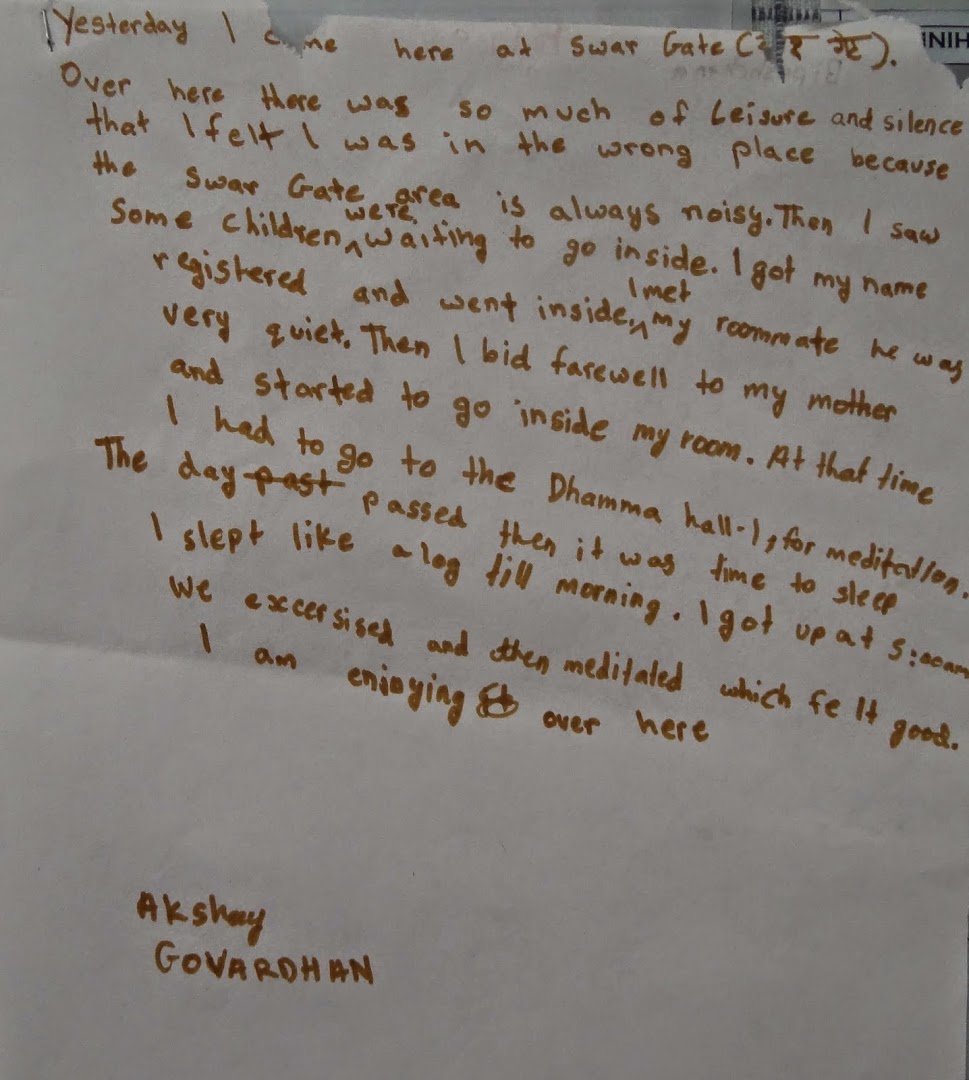 Yesterday I came here at Swar Gate ( गेट ).
Over here there was so much of Leisure and silence
that I felt I was in the wrong place because
the Swar Gate area is always noisy. Then I saw
Some children, were waiting to go inside. I got my name
registered and went inside, I met my roommate he was
very quiet. Then I bid farewell to my mother
and started to go inside my room. At that time
I had to go to the Dhamma hall-1, for meditation.
The day past passed then it was time to sleep
I slept like a log till morning. I got up at 5:00am
We excersised and then meditated which felt good.
I am enjoying it over here
Akshay
GOVARDHAN
INIH